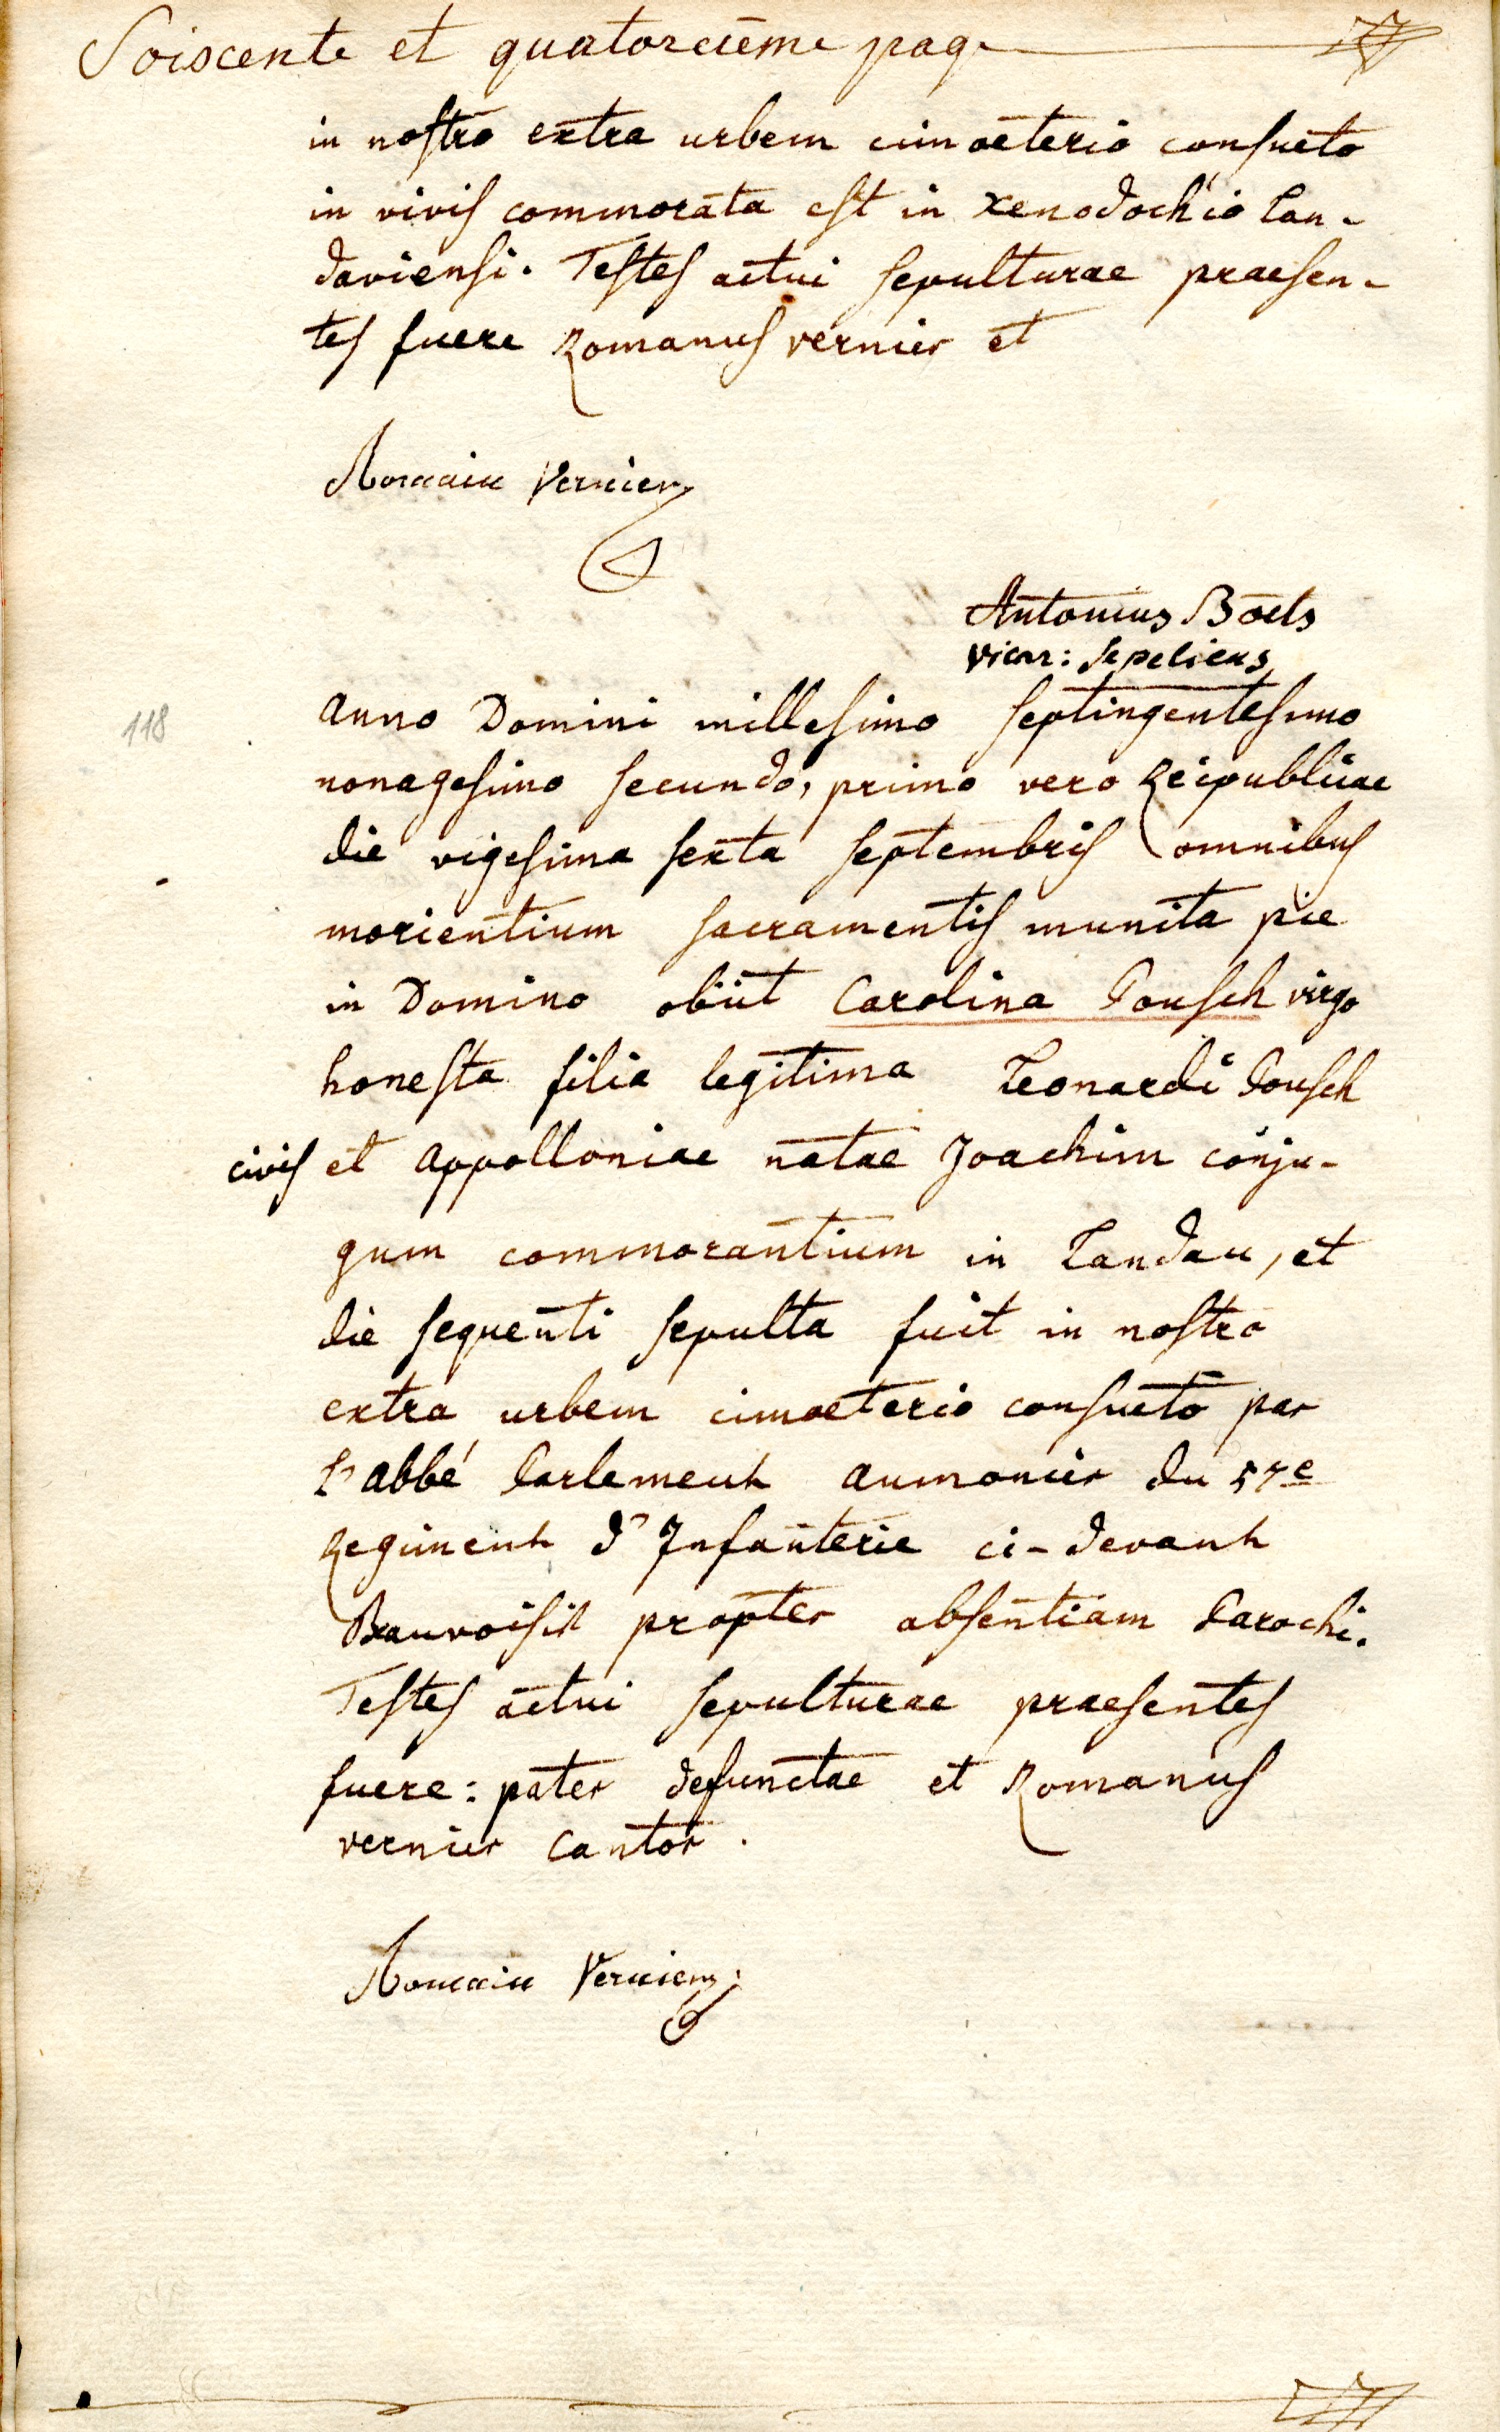 Soiscente et quatorcième page
in nostro extra urbem cimoeterio consueto
in vivis commorata est in Xenodochio Lan-
daviensi. Testes actui sepulturae praesen-
tes fuere Romanus vernier et
Romain Vernier
Antonius Boels
vicar: sepeliens
118 anno Domini millesimo septingentesimo
nonagesimo secundo, primo vero Reipublicae
die vigesima sexta septembris omnibus
morientium sacramentis munita pie
in Domino obiit Carolina Pousch virgo
honesta filia legitima Leonardi Pousch
civis et appolloniae natae Joachim conju-
gum commorantium in Landau, et
die sequenti sepulta fuit in nostro
extra urbem cimoeterio consueto par
L'abbé Parlement aumonier du 57e
Regiment d'Infanterie ci-devant
Beauvoisis propter absentiam Parochi.
Testes actui sepulturae praesentes
fuere: pater defunctae et Romanus
vernier Cantor.
Romain Vernier